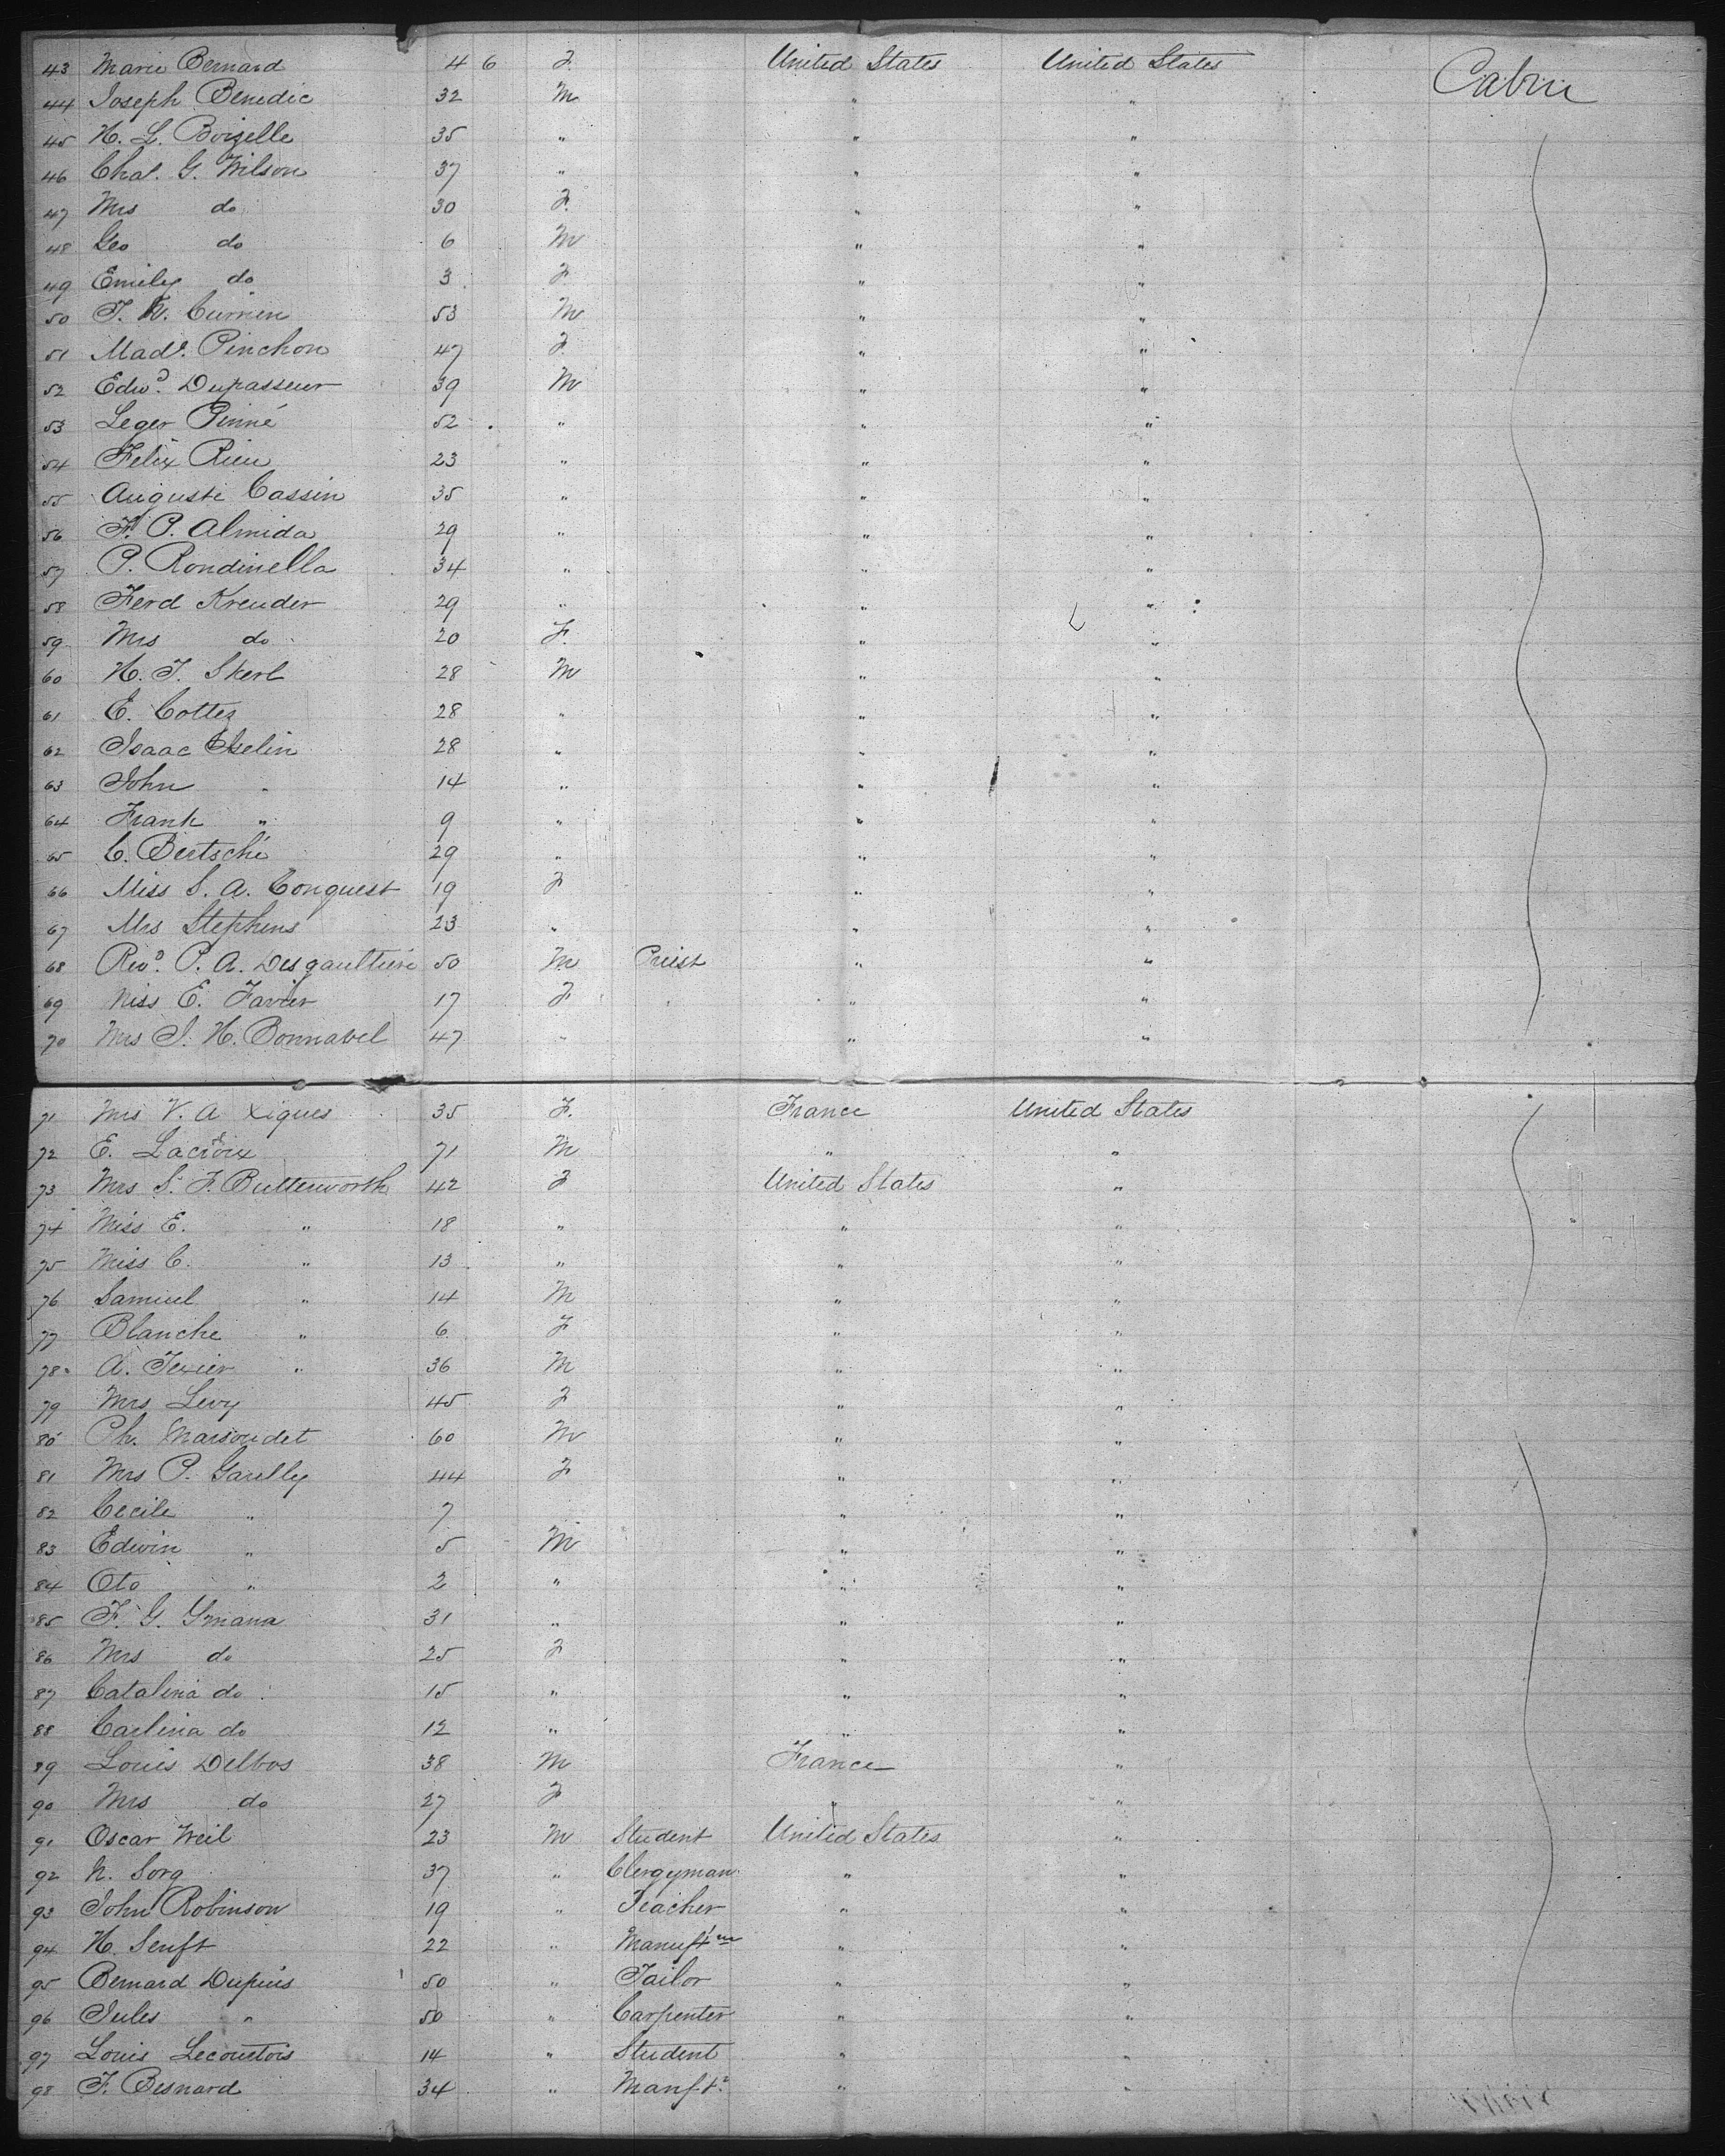 43 Marie Bernard 46 F. United States United States Cabin
44 Joseph Benedic 32 M " "
45 H. L. Boizelle 35 " " "
46 Chas. G. Wilson 37 " " "
47 Mrs do 30 F. " "
48 Geo do 6 M " "
49 Emily do 3 F " "
50 J. W. Currien 53 M " "
51 Made. Pinchon 47 F " "
52 Edwd. Dupasseur 39 M " "
53 Leger Pinné 52 " " "
54 Felix Rieu 23 " " "
55 Auguste Cassin 35 " " "
56 F. P. Almida 29 " " "
57 P. Rondinella 34 " " "
58 Ferd Kreuder 29 " " "
59 Mrs do 20 F. " "
60 H. T. Skerl 28 M " "
61 E. Cottez 28 " " "
62 Isaac Iselin 28 " " "
63 John " 14 " " "
64 Frank " 9 " " "
65 C. Bertsché 29 " " "
66 Miss S. A. Conquest 19 F " "
67 Mrs Stephens 23 " " "
68 Revd. P. A. Desgaultiere 50 M Priest " "
69 Miss E. Favier 17 F " "
70 Mrs J. H. Bonnabel 47 " " "
71 Mrs V. A Xiques 35 F. France United States
72 E. Lacroix 71 M " "
73 Mrs S. F. Butterworth 42 F United States "
74 Miss E. " 18 " " "
75 Miss C. " 13 " " "
76 Samuel " 14 M " "
77 Blanche " 6 F " "
78 A. Texier " 36 M " "
79 Mrs Levy 45 F " "
80 Ph. Marsoudet 60 M " "
81 Mrs P. Garelly 44 F " "
82 Cecile " 7 " "
83 Edwin " 5 M " "
84 Oto " 2 " " "
85 F. G. Ymana 31 " " "
86 Mrs do 25 F " "
87 Catalina do 15 " " "
88 Carlina do 12 " " "
89 Louis Delbos 38 M France "
90 Mrs do 27 F " "
91 Oscar Weil 23 M Student United States "
92 N. Sorg 37 " Clergyman " "
93 John Robinson 19 " Teacher " "
94 H. Senft 22 " " "
95 Bernard Dupuis 50 " Tailor " "
96 Jules " 50 " Carpenter " "
97 Louis Lecourtois 14 " Student " "
98 F. Besnard 34 " Manft. " "